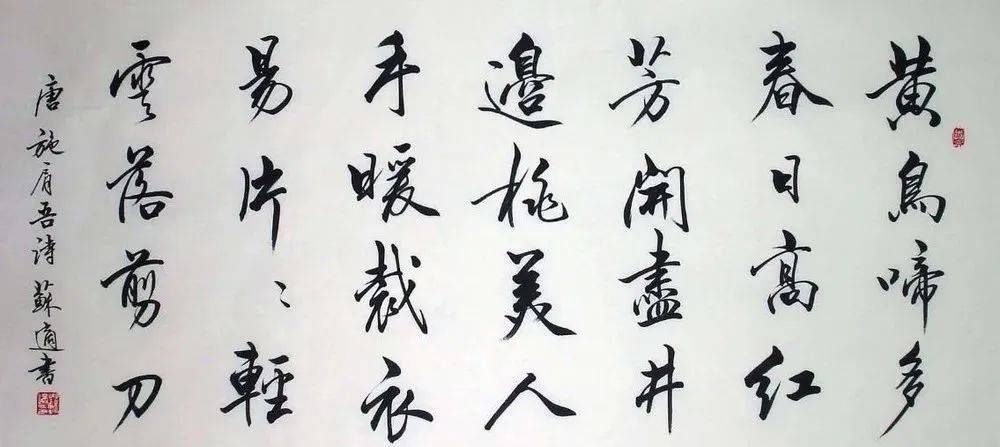 黄鳥啼多
春日高紅
芳開盡井
邉桃美人
手暖裁衣
易片〻輕
雲落剪刀
唐施肩吾詩蘇適書